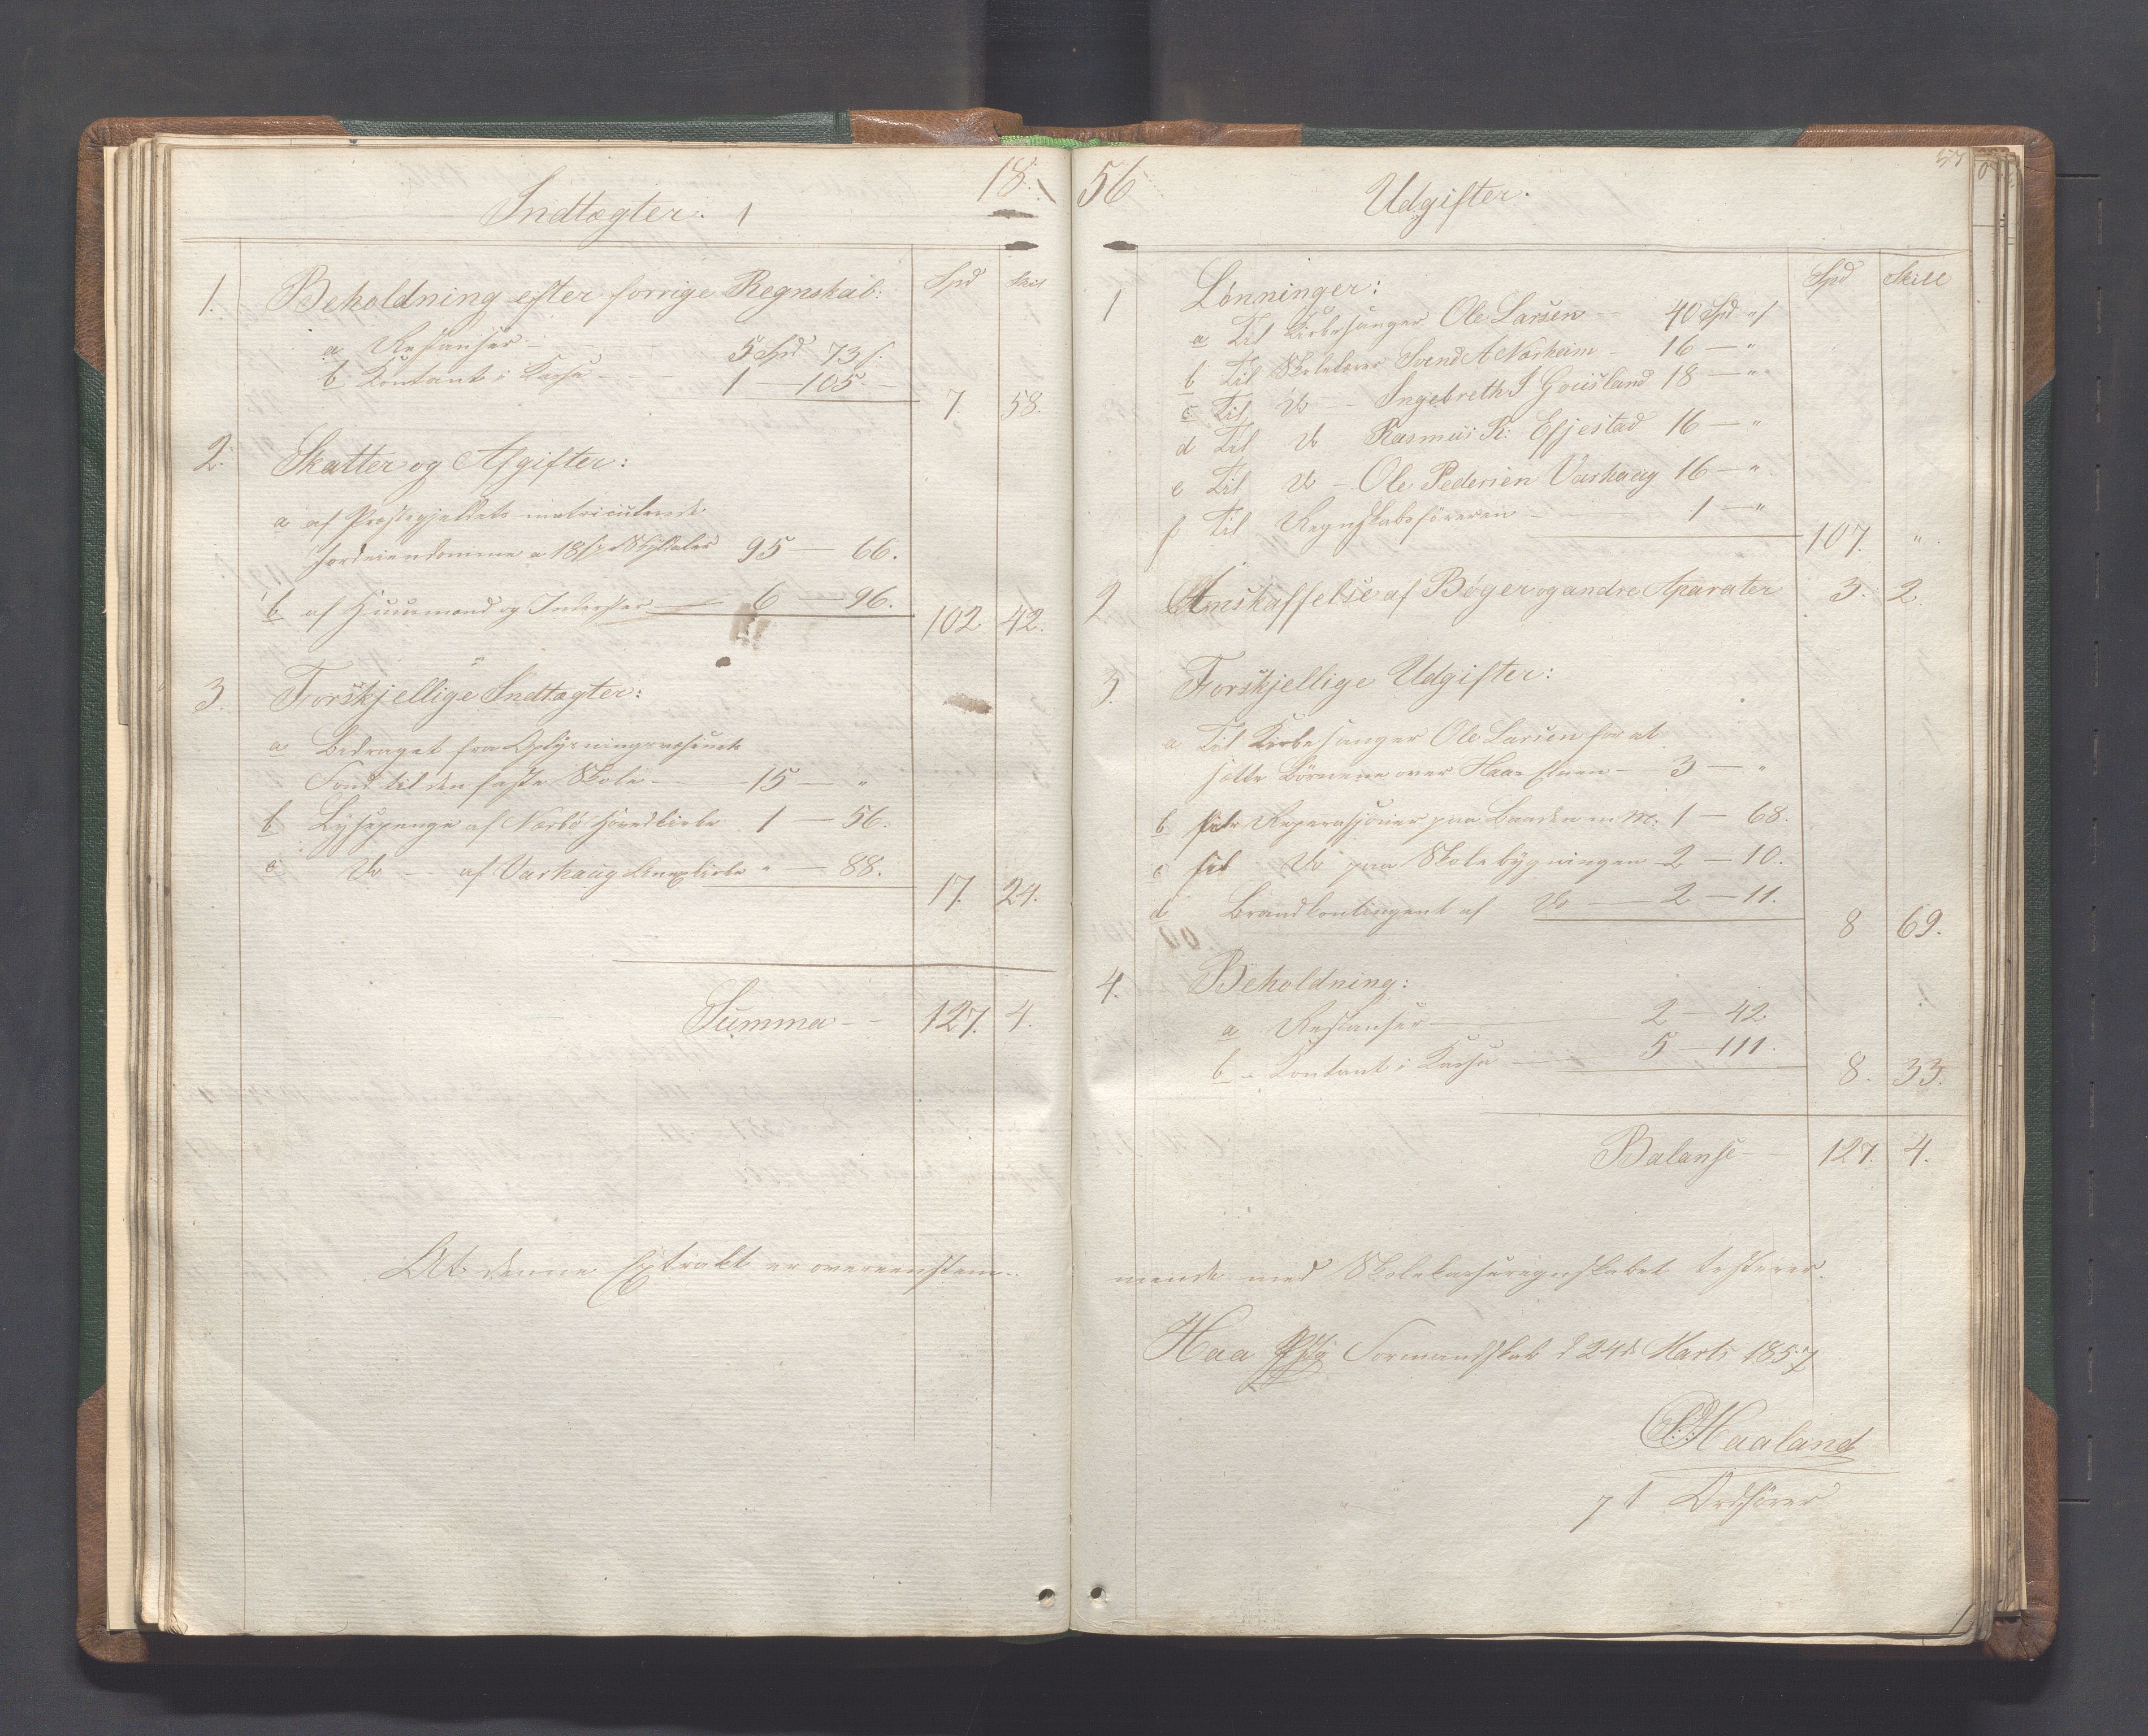 18 56
Indtægter.
Spd Skill
1. Beholdning efter forrige Regnskab:
a Restanser — 5 Spd 73 s:
b Kontant i Kasse — 1 — 105 —
7. 58.
2. Skatter og Afgifter:
a af Præstegjeldets matriculerede
Jordeiendomme a 18 s pr Skylddaler 95 — 66.
b af Huusmænd og Inderster — 6 — 96.
102. 42.
3. Forskjellige Indtægter:
a Bidraget fra Oplysningsvæsenets
Fond til den faste Skole — 15 — "
b Lysepenge af Nærbø Hovedkirke 1 — 56.
c Do — af Varhaug Anexkirke " — 88.
17. 24.
Summa — 127. 4.
At denne Extrakt er overeenstem-
57
Udgifter.
Spd Skill
1 Lønninger:
a Til Kirkesanger Ole Larsen — 40 Spd " s
b Til Skolelærer Svend A Nærheim — 16 — "
c Til Do — Ingebreth S Gousland 18 — "
d Til Do Rasmus R: Efjestad 16 — "
e Til Do — Ole Pedersen Varhaug 16 — "
f Til Regnskabsføreren — 1 — "
107. "
2 Anskaffelse af Bøger og andre Aparater 3. 2.
3. Forskjellige Udgifter:
a Til Kirkesanger Ole Larsen for at
sætte Børnene over Haa- Elven — 3 — "
b Reperasjoner paa Baaden m M: 1 — 68.
c Do paa Skolebygningen 2 — 10.
d Brandkontingent af Do — 2 — 11.
8 69.
4. Beholdning:
a Restanser — 2 — 42.
b - Kontant i Kasse — 5 — 111.
8. 33.
Balanse — 127. 4.
mende med Skolekasseregnskabet testerer.
Haa Formandskab d 24de Marts 1857
Haaland
Ordfører